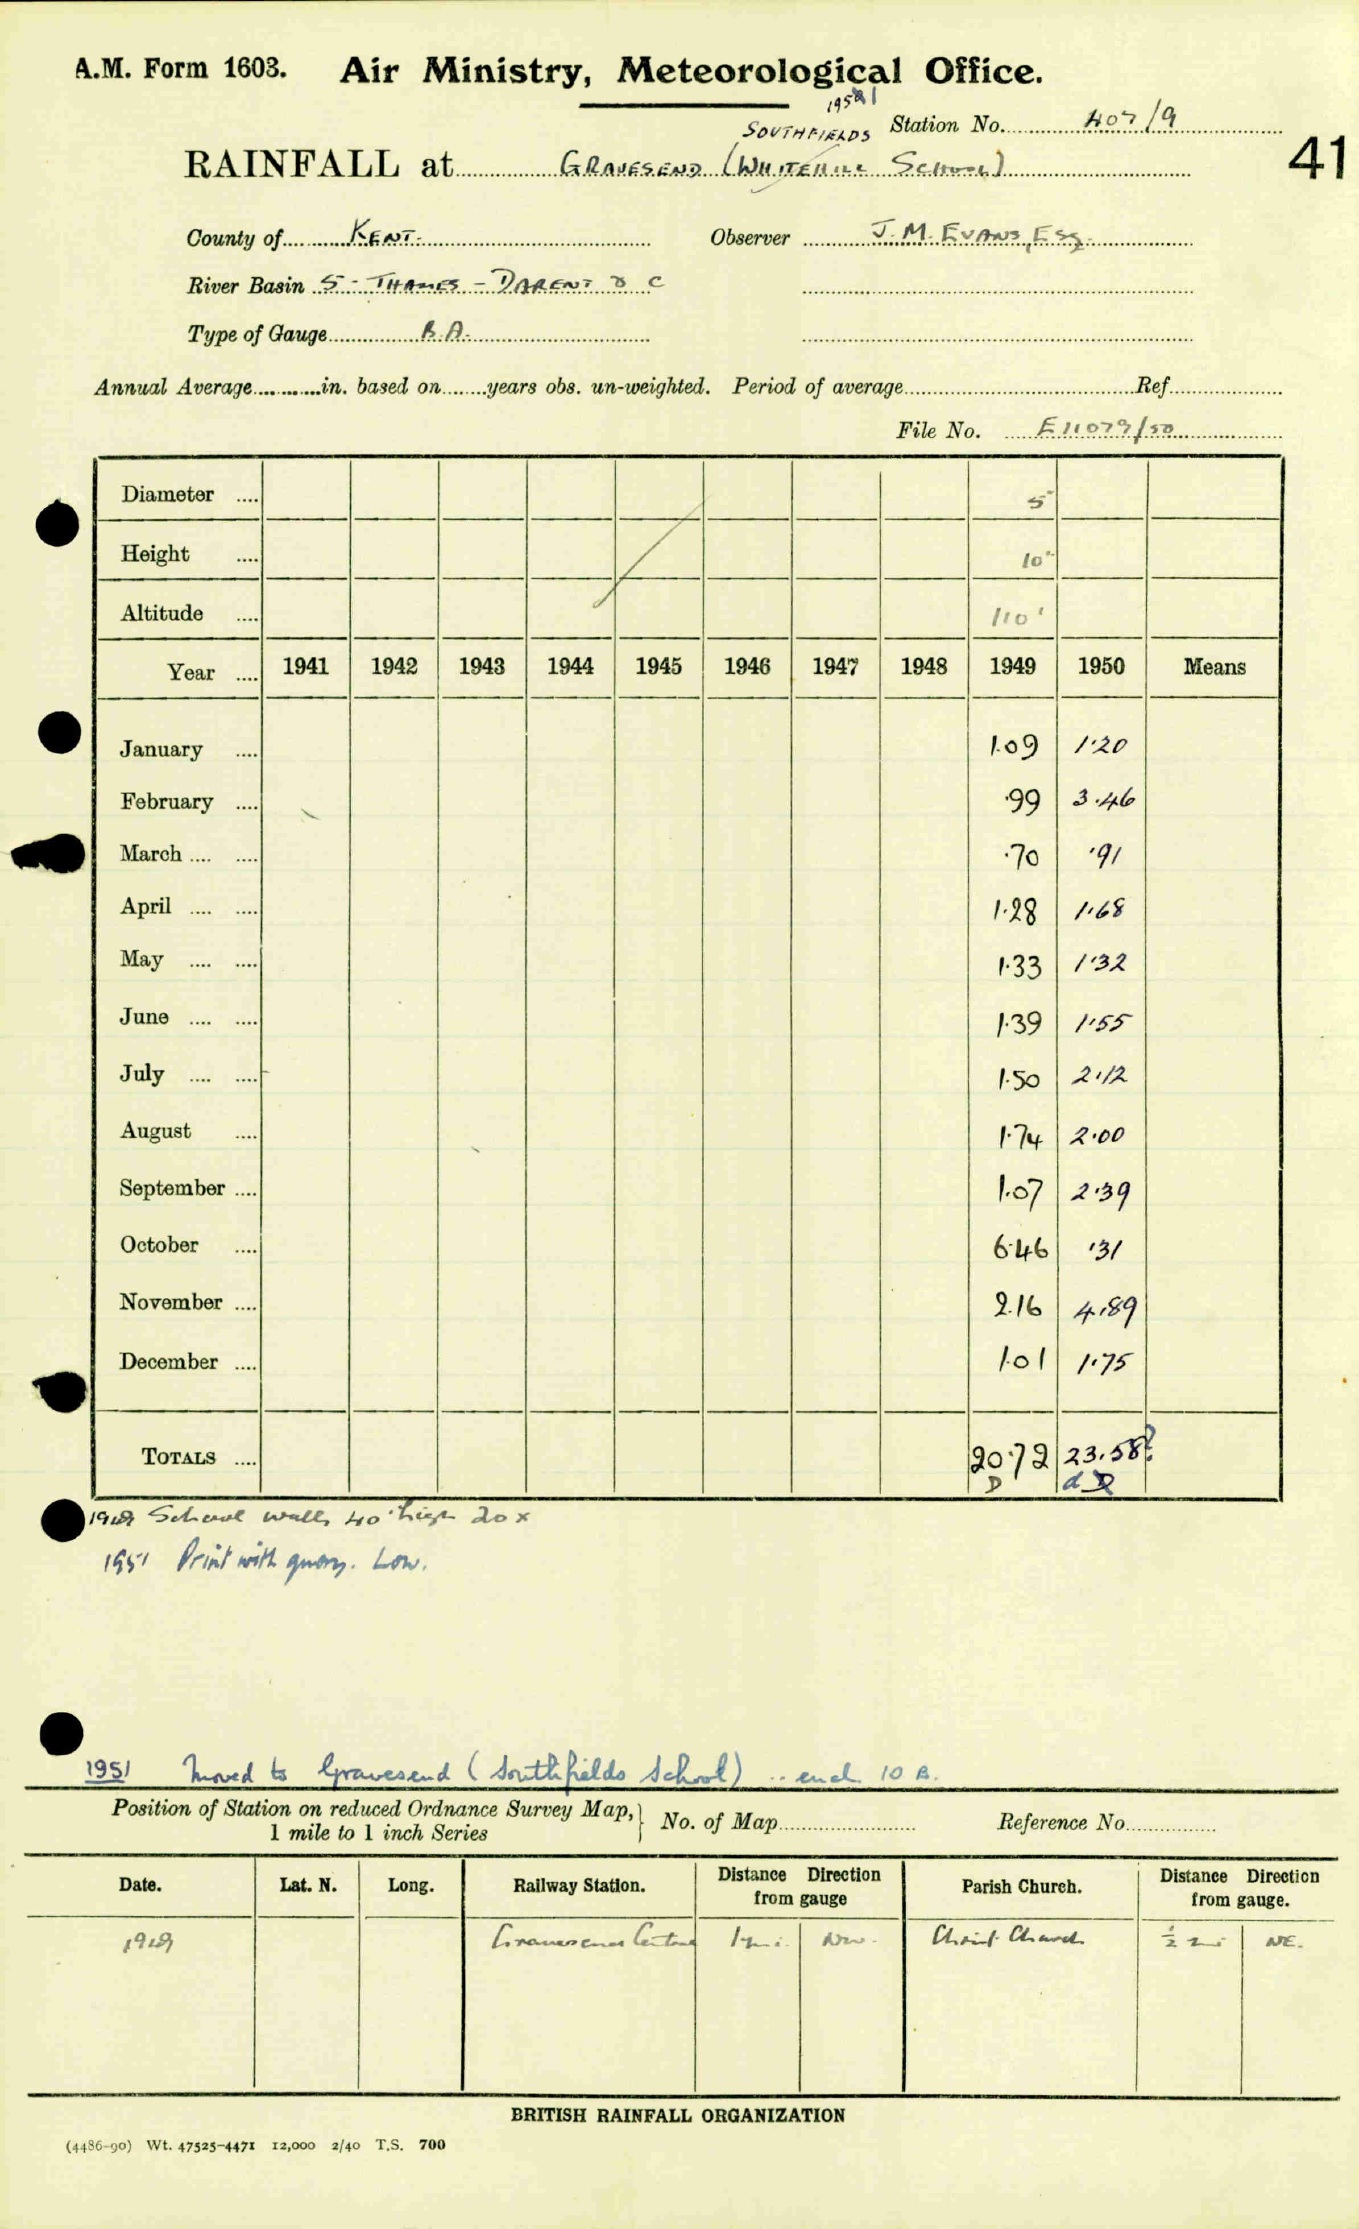 A.M. Form 1603. Air Ministry, Meteorological Office.
1951
Station No. 407/9
SOUTHFIELDS
RAINFALL at GRAVESEND (WHITEHILL SCHOOL)
41
County of KENT. Observer J. M. EVANS, ESQ.
River Basin 5 - THAMES - DARENT & C
Type of Gauge B.A.
Annual Average in. based on years obs. un-weighted. Period of average Ref
File No. E11079/50
Diameter .... 5"
Height .... 10"
Altitude .... 110'
Year .... 1941 1942 1943 1944 1945 1946 1947 1948 1949 1950 Means
January .... 1.09 1.20
February .... .99 3.46
March .... .... .70 .91
April .... .... 1.28 1.68
May .... .... 1.33 1.32
June .... .... 1.39 1.55
July .... .... 1.50 2.12
August .... 1.74 2.00
September .... 1.07 2.39
October .... 6.46 .31
November .... 2.16 4.89
December .... 1.01 1.75
TOTALS .... 20.72 23.58?
D d D
1949 School walls 40' high 20 x
1951 Print with query. Low.
1951 Moved to Gravesend (Southfields School) .. encl. 10 B.
Position of Station on reduced Ordnance Survey Map, } No. of Map Reference No.
1 mile to 1 inch Series
Date. Lat. N. Long. Railway Station. Distance Direction from gauge Parish Church. Distance Direction from gauge.
1949 Gravesend Central 1 mi. NW. Christ Church ½ mi NE.
BRITISH RAINFALL ORGANIZATION
(4486-90) Wt. 47525-4471 12,000 2/40 T.S. 700